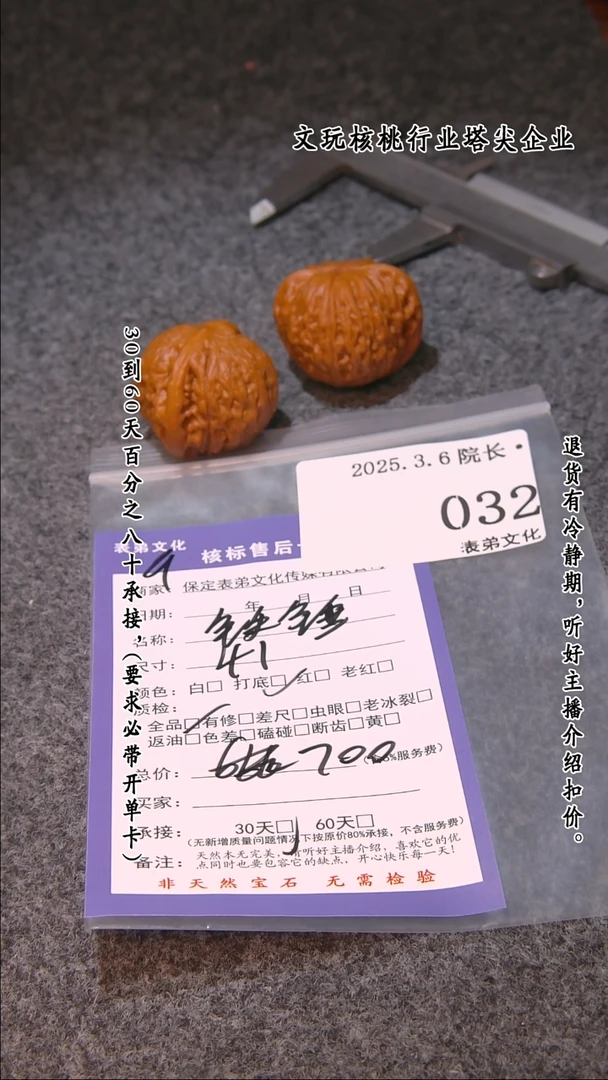 文玩核桃行业塔尖企业
30到60天百分之八十承接，(要求必带开单卡)
退货有冷静期，听好主播介绍扣价。
2025.3.6 院长
032
表弟文化
表弟文化 核标售后
商家 保定表弟文化传媒有限公司
日期： 年 月 日
名称：
尺寸： 41
颜色：白□ 打底□ 红□ 老红□
质检：
全品□有修□差尺□虫眼□老冰裂□
返油□色差□磕碰□断齿□黄□
总价： 700 服务费)
买家：
承接： 30天□ 60天□
(无新增质量问题情况下按原价80%承接，不含服务费)
备注：天然本无完美，听听好主播介绍，喜欢它的优
点同时也要包容它的缺点，开心快乐每一天！
非天然宝石 无需检验